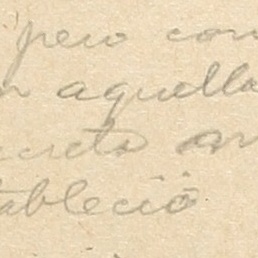 pero con
n aquella
creto an
tableció